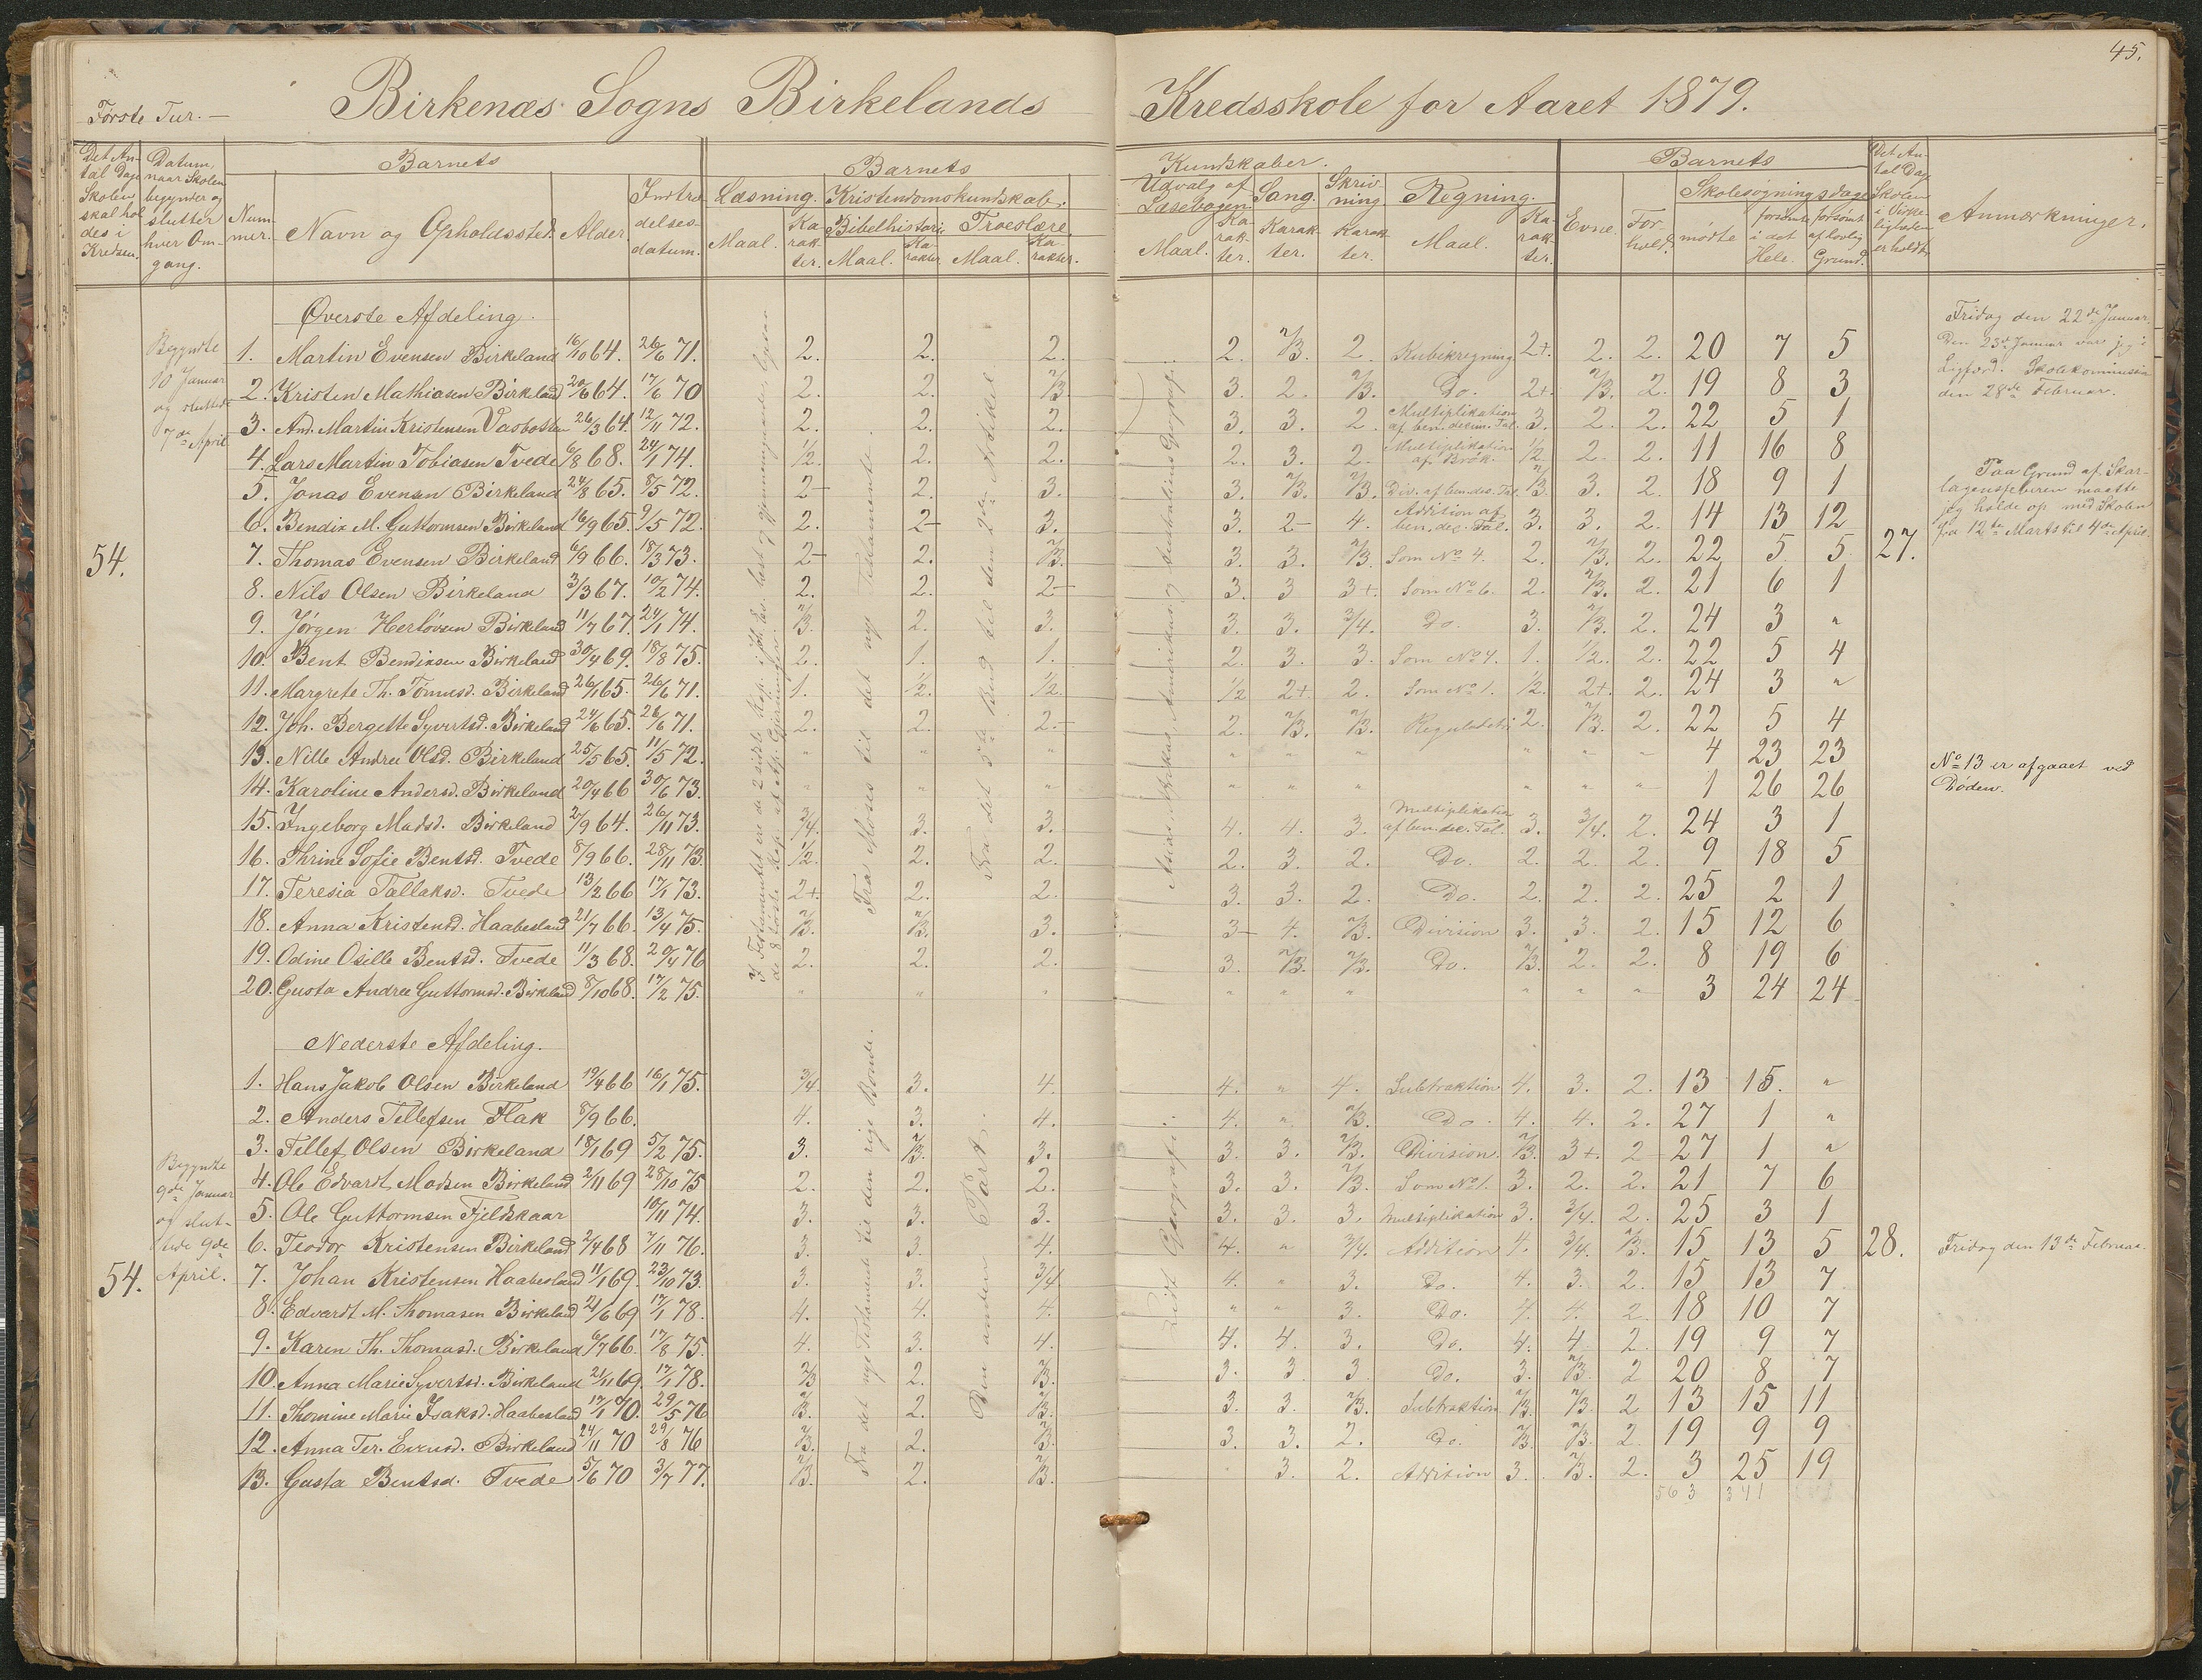 45.
Første Tur. —
Birkenæs Sogns Birkelands Kredsskole for Aaret 1879.
Det Antal Dage Skolen skal holdes i Kredsen.
Datum, naar Skolen begynder og slutter hver Omgang.
Barnets
Nummer.
Navn og Opholdssted.
Alder.
Indtrædelsesdatum.
Barnets Kundskaber.
Læsning. Maal. Karakter.
Kristendomskundskab. Bibelhistorie. Maal. Karakter. Troeslære Maal. Karakter.
Udvalg af Læsebogen. Maal. Karakter.
Sang. Karakter.
Skrivning. Karakter.
Regning. Maal. Karakter.
Barnets
Evne. Forhold.
Skolesøgningsdage mødte forsømte i det Hele. forsømt af lovlig Grund.
Det Antal Dage Skolen i Virkeligheden er holdt.
Anmærkninger.
Øverste Afdeling.
54.
Begyndte
10 Januar
og sluttede
7de April
1. Martin Evensen Birkeland 16/10 64. 26/6 71. 2. 2. 2. 2. 2/3. 2. Kubikregning 2+. 2. 2. 20 7 5
2. Kristen Mathiasen Birkeland 20/6 64. 17/6 70 2. 2. 2/3. 3. 2. 2/3. Do. 2+ 2/3. 2. 19 8 3
3. And. Martin Kristensen Vasbotten 26/3 64. 12/11 72. 2. 2. 2. 3. 3. 2. Multiplikation af ben. decim. Tal. 3. 2. 2. 22 5 1
4. Lars Martin Tobiasen Tvede 6/8 68. 24/1 74. 1/2. 2. 2. 2. 3. 2. Multiplikation af Brøk. 1/2 2. 2. 11 16 8
5. Jonas Evensen Birkeland 24/8 65. 8/5 72. 2- 2. 3. 3. 2/3. 2/3. Div. af ben. dec. Tal. 2/3. 3. 2. 18 9 1
6. Bendix M. Guttormsen Birkeland 16/9 65. 9/5 72. 2. 2- 3. 3. 2- 4. Addition af ben. dec. Tal. 3. 3. 2. 14 13 12
7. Thomas Evensen Birkeland 6/9 66. 18/3 73. 2- 2. 2/3. 3. 3. 2/3. Som No 4. 2. 2/3. 2. 22 5 5
8. Nils Olsen Birkeland 3/3 67. 10/2 74. 2. 2. 2- 3. 3 3+. Som No 6. 2. 2/3. 2. 21 6 1
9. Jørgen Herlovsen Birkeland 11/7 67. 24/1 74. 2/3. 2. 3. 3. 3. 3/4. Do. 3. 2/3. 2. 24 3 "
10. Bent Bendiksen Birkeland 30/4 69. 18/8 75. 2. 1. 1. 2. 3. 3. Som No 4. 1. 1/2. 2. 22 5 4
11. Margrete Th. Tønnesd. Birkeland 26/1 65. 26/6 71. 1. 1/2. 1/2. 1/2 2+. 2. Som No 1. 1/2. 2+. 2. 24 3 "
12. Joh. Bergette Syvertsd. Birkeland 24/6 65. 26/6 71. 2. 2. 2.- 2. 2/3. 2/3. Reguladetri 2. 2/3. 2. 22 5 4
13. Nille Andrea Olsd. Birkeland 25/5 65. 11/5 72. " " " " " " " " — 4 23 23
14. Karoline Andersd. Birkeland 20/4 66 30/6 73. " " " " " " " " — 1 26 26
15. Ingeborg Madsd. Birkeland 2/9 64. 26/11 73. 3/4. 3. 3. 4. 4. 3. Multiplikation af ben. dec. Tal. 3. 3/4. 2. 24 3 1
16. Thrine Sofie Bentsd. Tvede 8/9 66. 28/11 73. 1/2. 2. 2. 2. 3. 2. Do. 2. 2. 2. 9 18 5
17. Teresia Tallaksd. Tvede 13/2 66 17/1 73. 2+. 2. 2. 3. 3. 2. Do. 2. 2. 2. 25 2 1
18. Anna Kristensd. Haabesland 21/7 66. 13/4 75. 2/3. 2/3. 3. 3- 4. 2/3. Division 3. 3. 2. 15 12 6
19. Odine Osille Bentsd. Tvede 11/3 68. 20/4 76 2. 2. 2. 3. 2/3. 2/3. Do. 2/3. 2. 2. 8 19 6
20. Gusta Andrea Guttormsd. Birkeland 8/10 68. 17/2 75. " " " " " " " " — 3 24 24
27.
Fra Moses til det ny Testamente
Fra det 5te Bud til den 2den Artikel
Asien, Afrika, Amerika og Australiens Geografi.
Fridag den 22de Januar.
Den 23de Januar var jeg i
Ligfærd. Skolekommission
den 28de Februar.
Paa Grund af Skar-
lagensfeberen maatte
jeg holde op med Skolen
fra 12te Marts til 4de April.
No 13 er afgaaet ved
Døden.
Nederste Afdeling.
54.
Begyndte
9de Januar
og slut-
tede 9de
April.
1. Hans Jakob Olsen Birkeland 19/4 66 16/1 75. 3/4. 3. 4. 4. " 4. Subtraktion 4. 3. 2. 13 15. "
2. Anders Tellefsen Flak 8/9 66. 4. 3. 4. 4. " 2/3. Do. 4. 4. 2. 27 1 "
3. Tellef Olsen Birkeland 18/1 69 5/2 75. 3. 2/3. 3. 3. 3. 2/3. Division. 2/3. 3+. 2 27 1 "
4. Ole Edvardt Madsen Birkeland 2/11 69 28/10 75 2. 2. 2. 3. 3. 2/3. Som No 1. 3. 2. 2. 21 7 6
5. Ole Guttormsen Fjeldskaar 10/11 74. 3. 3. 3. 3. 3. 3. Multiplikation 3. 3/4. 2. 25 3 1
6. Teodor Kristensen Birkeland 2/4 68 7/11 76. 3. 3. 4. 4. " 3/4. Addition 4. 3/4. 2/3. 15 13 5
7. Johan Kristensen Haabesland 11/1 69. 23/10 73. 3. 3. 3/4 4. " 3. Do. 4. 3. 2. 15 13 7
8. Edvardt M. Thomasen Birkeland 21/6 69 17/1 78. 4. 4. 4. " " 3. Do. 4. 4. 2. 18 10 7
9. Karen Th. Thomasd. Birkeland 6/7 66. 17/8 75. 4. 3. 4. 4. 4. 3. Do. 4. 4 2. 19 9 7
10. Anna Marie Syvertsd. Birkeland 21/11 69. 17/1 78. 2/3 2. 2/3. 3. 3 3 Do. 3. 2/3. 2 20 8 7
11. Thomine Marie Isaksd. Haabesland 17/1 70. 29/5 76 2/3. 2. 2/3. 3. 3. 2/3. Subtraktion 2/3. 2/3. 2 13 15 11
12. Anna Ter. Evensd. Birkeland 24/11 70 29/8 76 2/3. 2. 2/3. 3. 3. 2. Do. 2/3. 2/3. 2. 19 9 9
13. Gusta Bentsd. Tvede 5/6 70 3/7 77. 2/3. 2. 2/3. 3. 2. Addition 3. 2/3. 2. 3 25 19
563 341
28.
Fra det ny Testamente til den rige Bonde.
Den anden Part.
Geografi.
Fridag den 13de Februar.